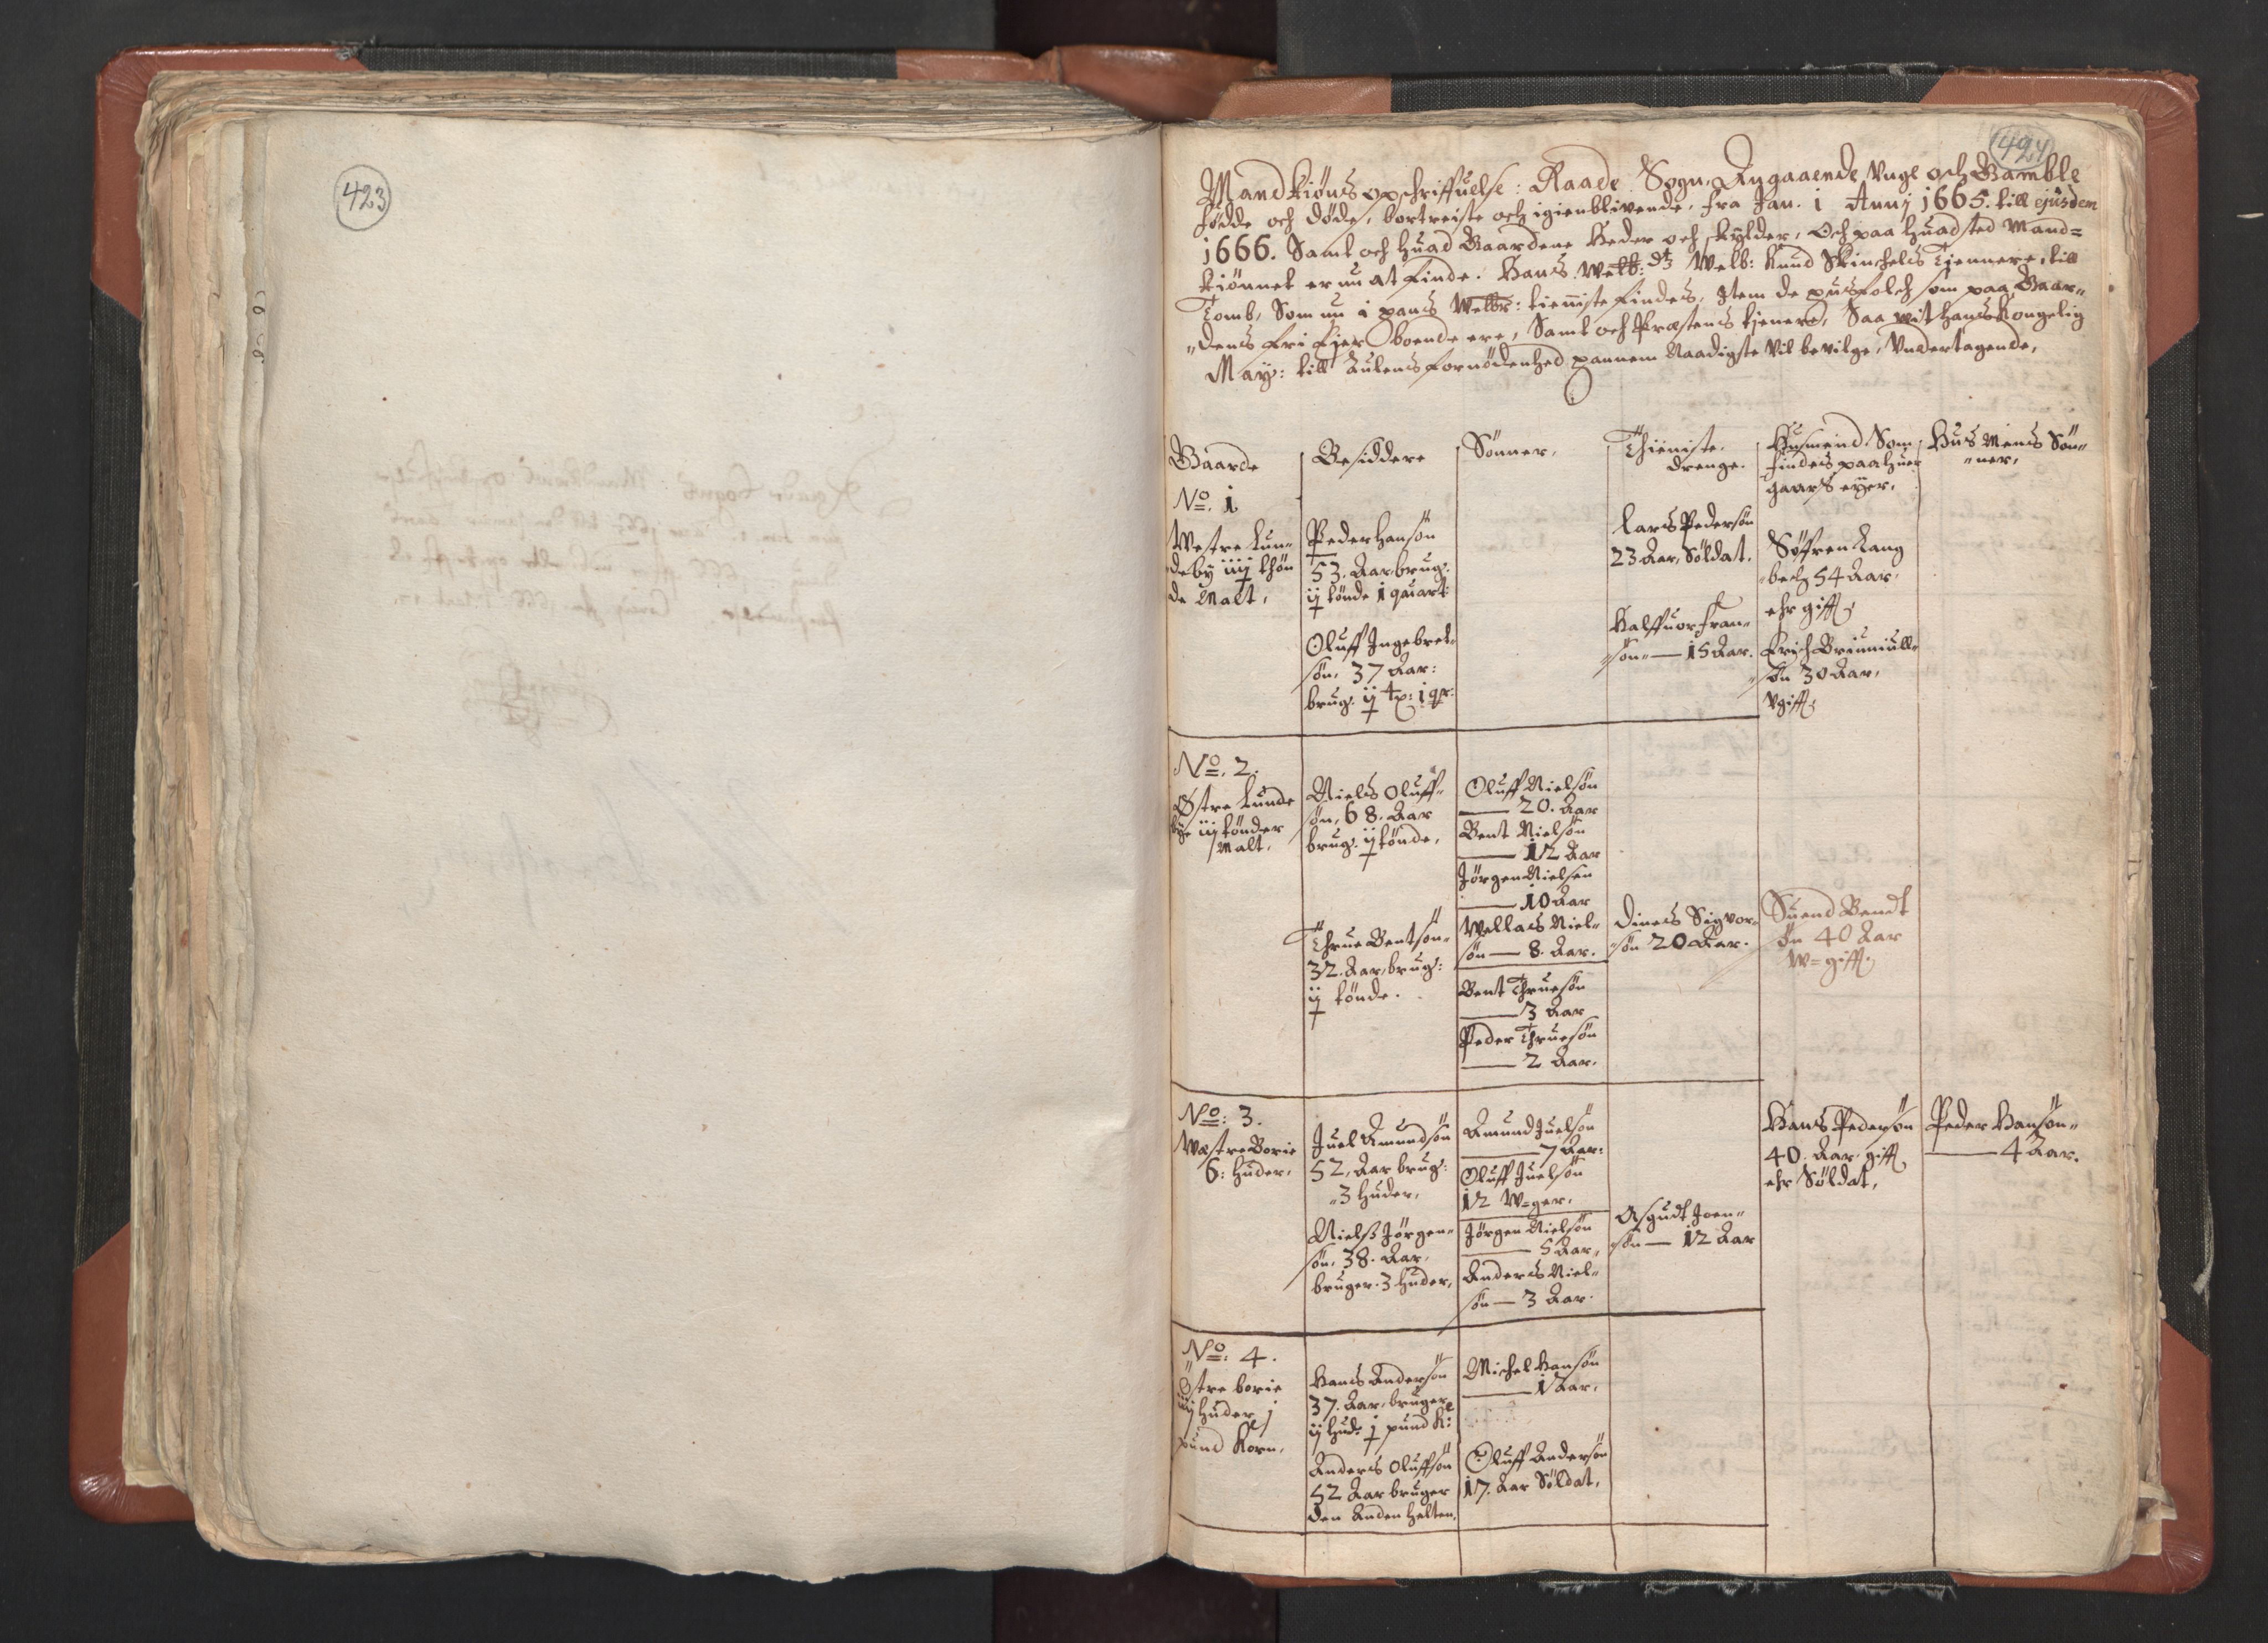 423
424
Mandkiøns opschriffuelse: Raade Sogn, Angaaende Unge och Gamble
fødde och døde, bortreiste och igienblivende, fra Jan. 1 Anni 1665. till ejusdem
1666. Samt och huad Gaardene heder och skylder, Och paa huad sted Mand=
kiønnet er nu at finde. Hans Welb: Knud Skinchels Tjennere, till
Tomb, Som nu i hans Welb: tienniste findes, Item de husfolch som paa Gaar„
„dens fri Ejer boende ere, Samt och Præstens tjenere, Saa wit hans Kongelig
May: till Aulens fornødenhed hannem Naadigste vil bevilge, Undertagende,
Gaarde
Besiddere
Sønner,
Thieniste
drenge.
Husmend Som
findes paa huer
gaards eyer,
Hus Mens Søn„
„ner,
No. 1
Westre Lun„
deby iiij thøn
de Malt,
Peder Hansøn
53. Aar, brug:
ij tønde 1 quart:
Oluff Ingebret„
søn, 37 Aar:
brug. ij tø: 1 qr:
Lars Pedersøn
23 Aar, Soldat.
Halffuor Fran„
„søn — 15 Aar.
Søffren Lang
„bech 54 Aar,
ehr gifft,
Erich Brinniull„
søn 30 Aar,
Vgifft,
No. 2.
Østre Lunde
bye iiij tønder
Malt,
Niels Oluff„
søn, 68. Aar
brug. ij tønde,
Thrue Bentsøn„
32. Aar, brug:
ij tønde.
Oluff Nielsøn
— 20. Aar
Bent Nielsøn
— 12 Aar
Jørgen Nielsen
— 10 Aar
Wellas Niel„
søn — 8. Aar.
Bent Thruesøn
— 3 Aar
Peder Thruesøn
— 2 Aar.
Dines Sigvor„
„søn 20 Aar.
Suend Bendt
søn 40 Aar
W=gifft,
No: 3.
Westre Borie
6: huder,
Juel Amundsøn
52, Aar brug:
„3 huder,
Niels Jørgen„
søn, 38. Aar,
bruger. 3 huder,
Amund Juelsøn
— 7 Aar:
Oluff Juelsøn
12 W=ger,
Jørgen Nielsøn
— 5 Aar„
Anders Niel„
søn — 3 Aar.
Asgudt Joen„
„søn — 12 Aar
Hans Pedersøn
40. Aar gifft
ehr Soldat,
Peder Hansøn„
— 4 Aar.
No: 4.
Østre borie
iiij huder j
pund Korn,
Hans Andersøn
37. Aar, bruger
ij hud: j pund K:
Anders Oluffsøn
52 Aar bruger
den Anden helten,
Michel Hansøn
— 1 Aar,
Oluff Andersøn
17. Aar Soldat,